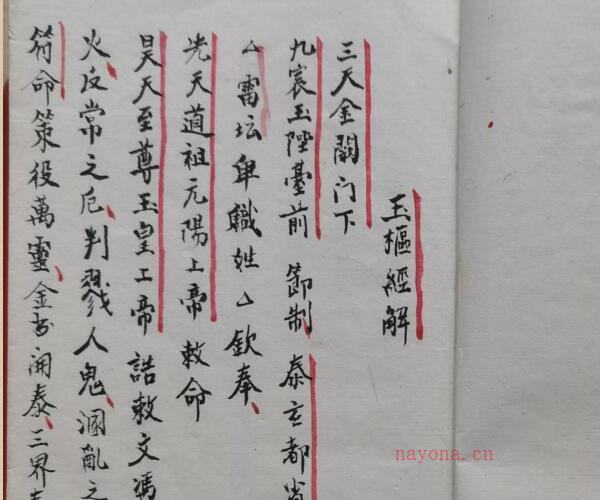 玉樞經解
三天金闕门下
九宸玉陛臺前 節制 泰玄都省
△雷坛卑職姓△欽奉
先天道祖元陽上帝 敕命
昊天至尊玉皇上帝 誥敕文馮
火反常之厄判戮人鬼溷亂之
符命策役萬靈金书開泰三界
nayona.cn